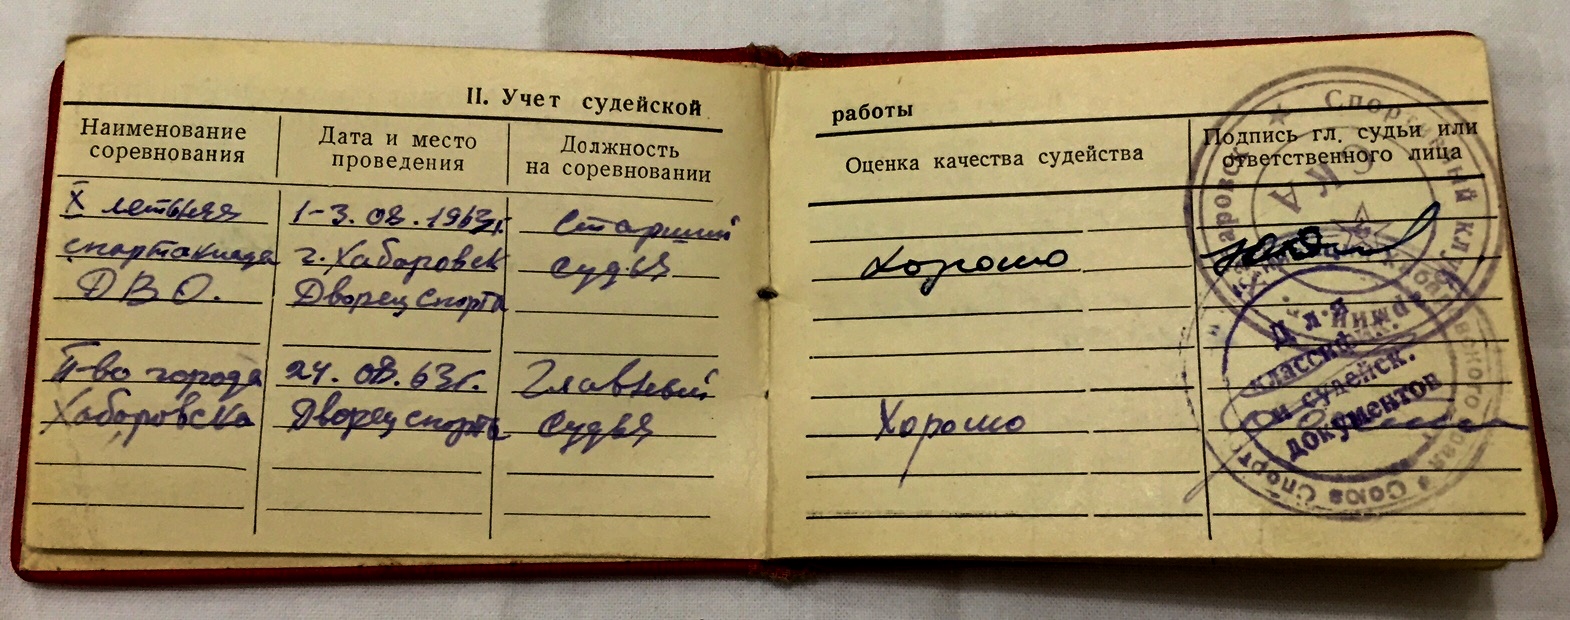 II. Учет судейской работы
Наименование соревнования
Дата и место проведения
Должность на соревновании
Оценка качества судейства
Подпись гл. судьи или ответственного лица
X летняя
1-3.08.1963г.
Старший
спартакиада
г. Хабаровск
судья
Хорошо
ДВО.
Дворец Спорта
П-во города
24.08.63г.
Главный
Хабаровска
Дворец спорта
судья
Хорошо
★ Спортивный клуб
армии
СКА
Для
классиф.
и судейск.
документов
Союз Спорт